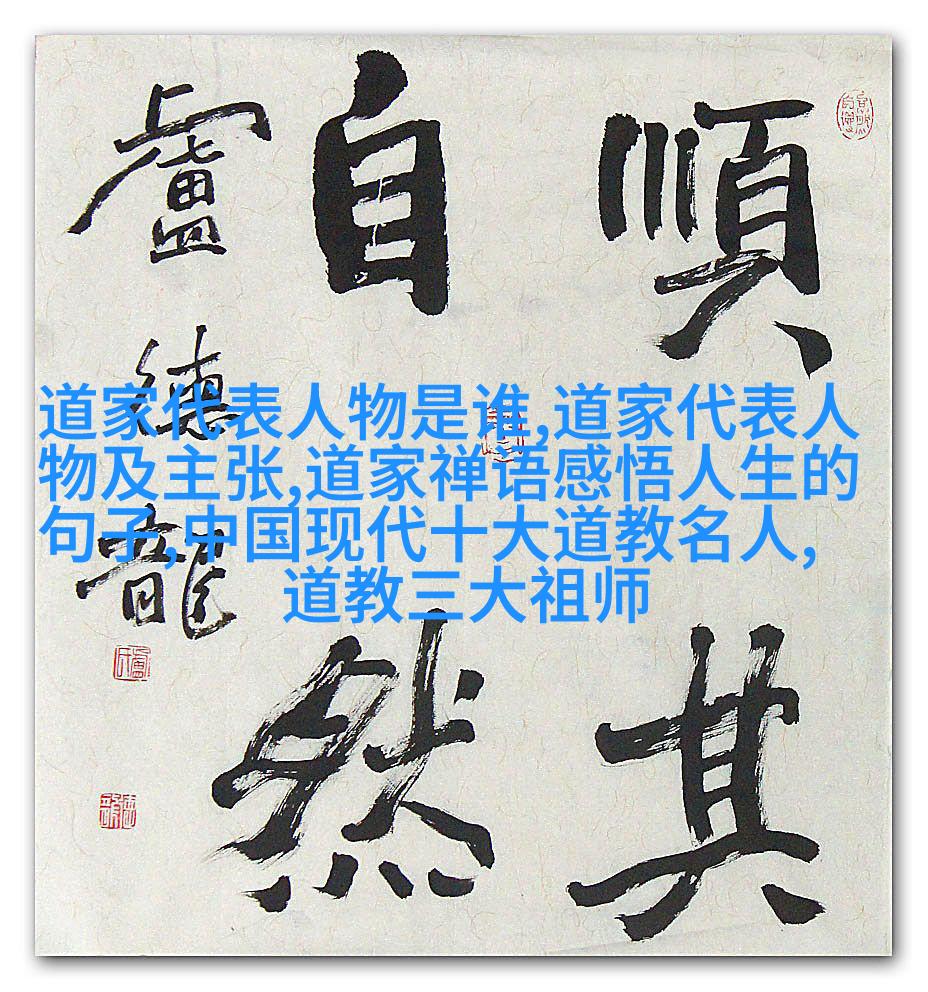 順其
自然
盧德龍
道家代表人物是谁,道家代表人
物及主张,道家禅语感悟人生的
句子,中国现代十大道教名人,
道教三大祖师